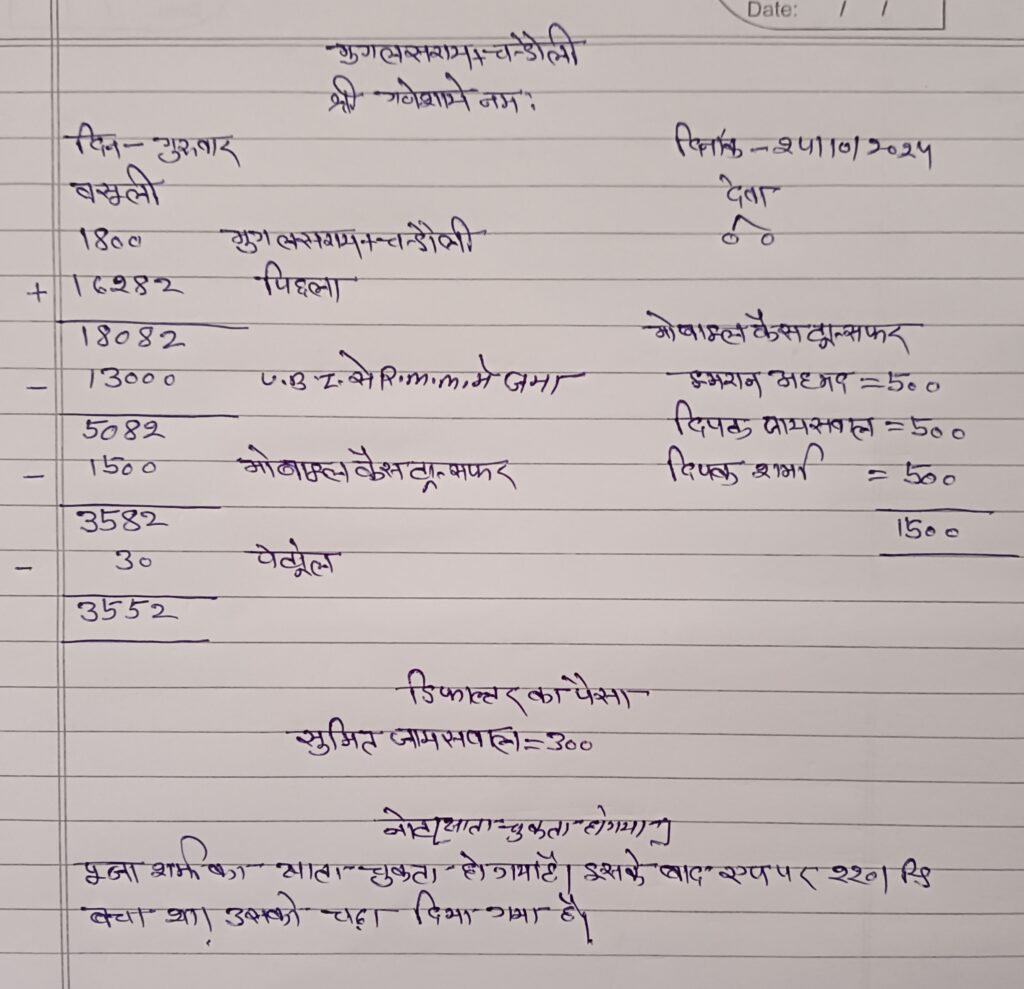 Date: / /
मुगलसराय+चन्दौली
श्री गणेशाये नमः
दिन - गुरुवार दिनांक - २५/१०/२०२५
वसूली देवा
1800 मुगलसराय+चन्दौली ००
+ 16282 पिछला
18082 मोबाइल कैस ट्रान्सफर
- 13000 U.B.I. से R.m.m. मे जमा इमरान अहमद = 500
5082 दिपक जायसवाल = 500
- 1500 मोबाइल कैस ट्रान्सफर दिपक शर्मा = 500
3582 1500
- 30 पेट्रोल
3552
डिफाल्टर का पैसा
सुमित जायसवाल = 300
नोट (खाता चुकता हो गया)
पूजा शर्मा का खाता चुकता हो गया है। इसके बाद एप पर २२०।
बचा था। उसको चढ़ा दिया गया है।